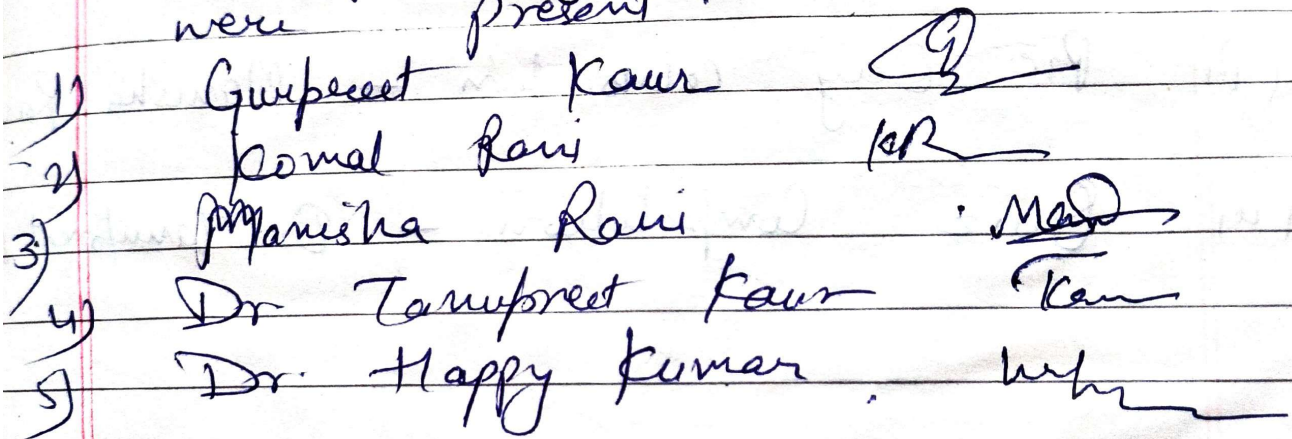 were present
1) Gurpreet Kaur
2) Komal Rani KR
3) Manisha Rani
4) Dr Tanupreet Kaur Kau
5) Dr. Happy Kumar